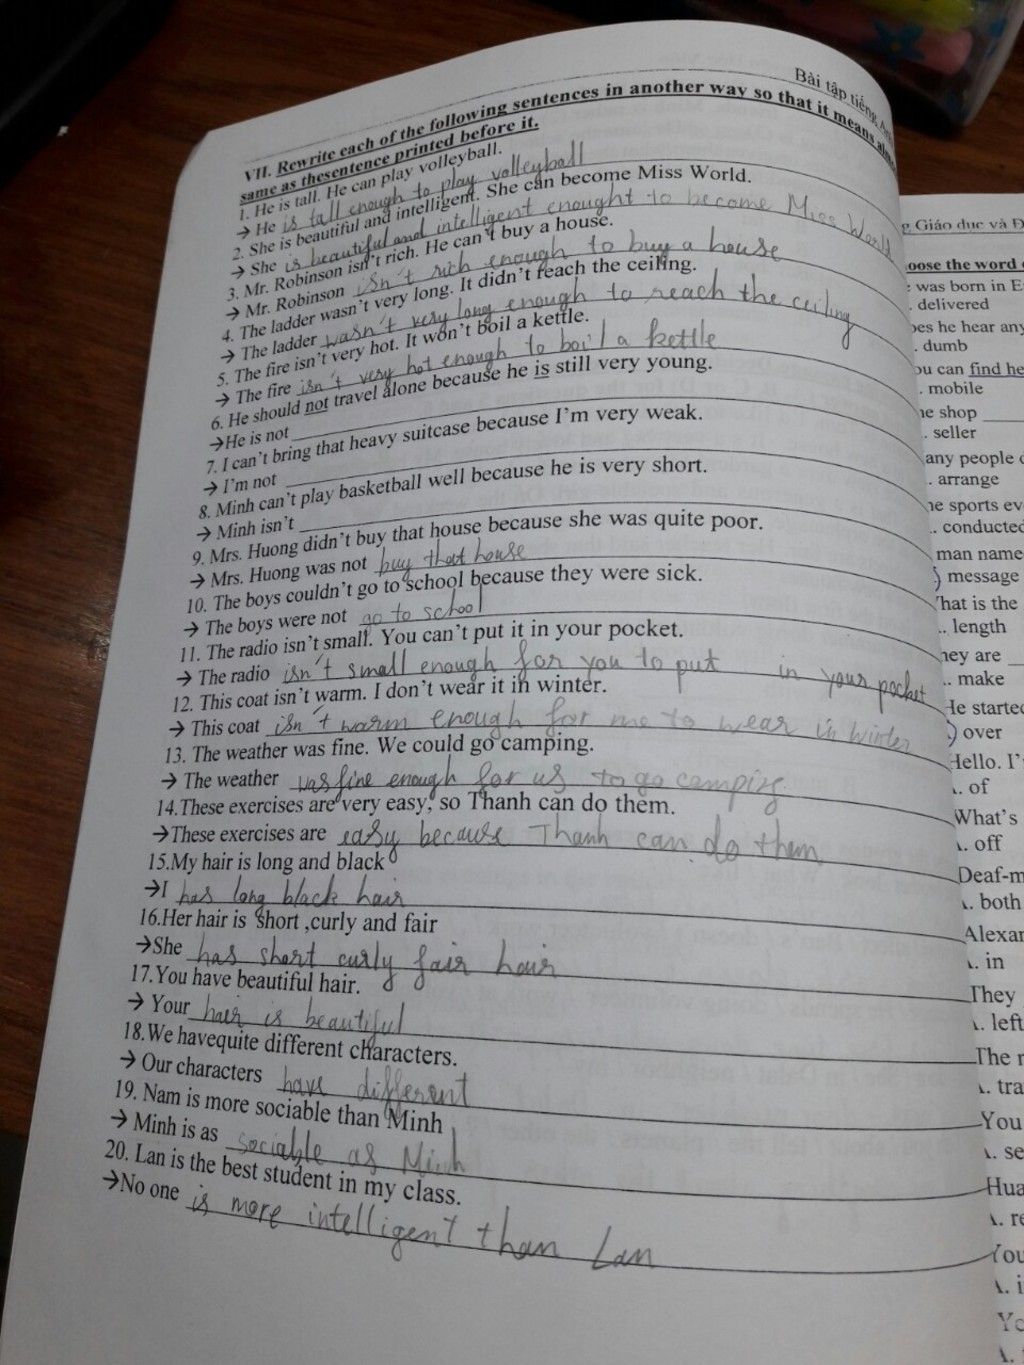 Bài tập tiếng
VII. Rewrite each of the following sentences in another way so that it means
same as thesentence printed before it.
1. He is tall. He can play volleyball.
→ He is tall enough to play volleyball
2. She is beautiful and intelligent. She can become Miss World.
→ She is beautiful and intelligent enought to become Miss World
3. Mr. Robinson isn't rich. He can't buy a house.
→ Mr. Robinson isn't rich enough to buy a house
4. The ladder wasn't very long. It didn't reach the ceiling.
→ The ladder wasn't very long enough to reach the ceiling
5. The fire isn't very hot. It won't boil a kettle.
→ The fire isn't very hot enough to boil a kettle
6. He should not travel alone because he is still very young.
→He is not
7. I can't bring that heavy suitcase because I'm very weak.
→ I'm not
8. Minh can't play basketball well because he is very short.
→ Minh isn't
9. Mrs. Huong didn't buy that house because she was quite poor.
→ Mrs. Huong was not buy that house
10. The boys couldn't go to school because they were sick.
→ The boys were not go to school
11. The radio isn't small. You can't put it in your pocket.
→ The radio isn't small enough for you to put in your pocket
12. This coat isn't warm. I don't wear it in winter.
→ This coat isn't warm enough for me to wear in winter
13. The weather was fine. We could go camping.
→ The weather was fine enough for us to go camping
14.These exercises are very easy, so Thanh can do them.
→These exercises are easy because Thanh can do them
15.My hair is long and black
→I has long black hair
16.Her hair is short ,curly and fair
→She has short curly fair hair
17.You have beautiful hair.
→ Your hair is beautiful
18.We havequite different characters.
→ Our characters have different
19. Nam is more sociable than Minh
→ Minh is as sociable as Minh
20. Lan is the best student in my class.
→No one is more intelligent than Lan
Giáo dục và
the word
was born in
. delivered
he hear
. dumb
can find
. mobile
shop
. seller
any people
. arrange
sports
.. conducted
man name
message
is the
.. length
are
.. make
He started
over
Hello.
. of
What's
. off
Deaf-
. both
. in
They
. left
The
You